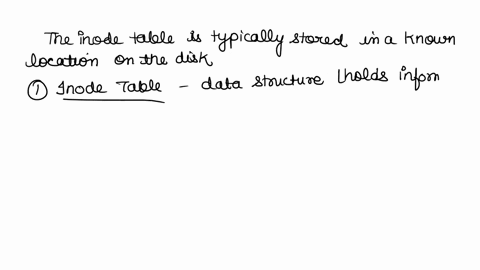 The inode table is typically stored in a known
location on the disk
① Inode Table – data structure (holds inform